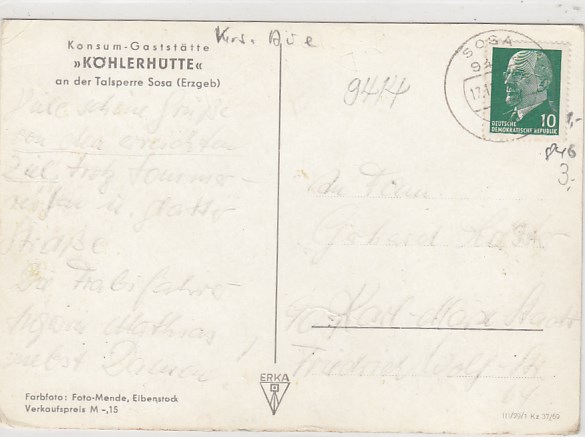 Konsum-Gaststätte
»KÖHLERHÜTTE«
an der Talsperre Sosa (Erzgeb)
Krs. Aue
9414
SOSA
DEUTSCHE
DEMOKRATISCHE REPUBLIK
10
1,-
846
3,-
Viele schöne Grüße
von dem erreichten
Ziel trotz Sommer-
reifen u. glatter
Straße.
Die Trabifahrer
Mathias
nebst Damen!
Fam.
Gerhard
Karl-Marx-Stadt
Friedrich Wolf Str.
ERKA
Farbfoto: Foto-Mende, Eibenstock
Verkaufspreis M -,15